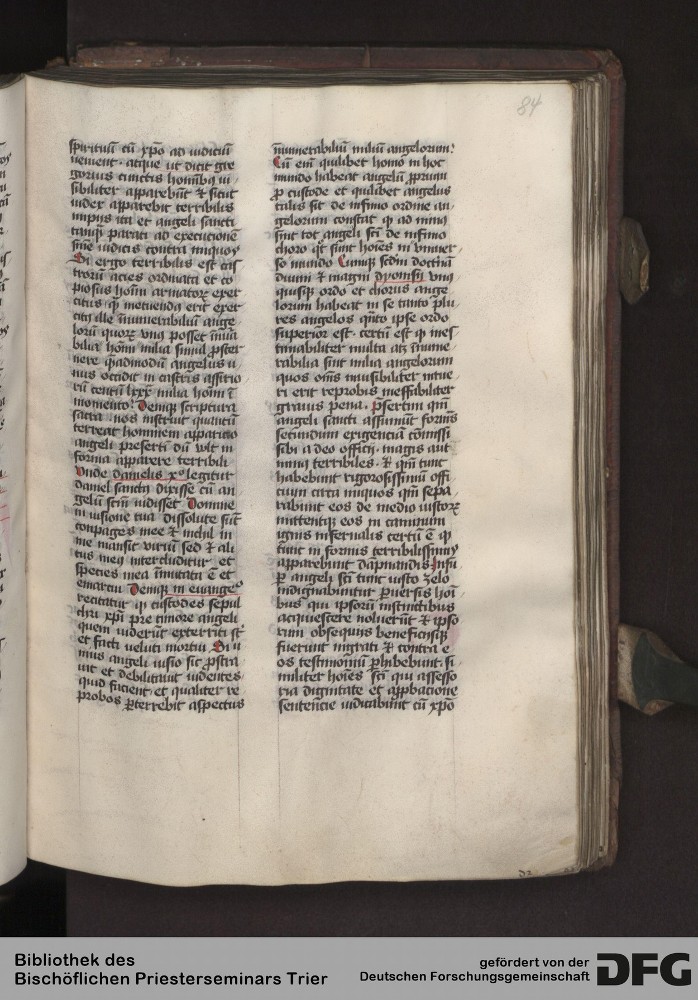 84
spirituũ cũ xp̃o ad iudiciũ
uenient · atque ut dicit gre
gorius cunctis hominibꝫ ui
sibiliter apparebũt ⁊ sicut
iudex apparebit terribilis
impijs ita et angeli sancti
tanqͣ parati ad executionẽ
sn̄ie iudicis contra iniquos
Si ergo terribilis est cas
trorũ acies ordinata et co
piosus hom̃ armatoꝝ exer
citus qͣ metuendꝰ erit exer
citꝰ ille innumerabiliũ ange
lorũ quoꝝ vnꝰ posset innũa
bilia hom̃ milia simul ꝓster
nere quẽadmodũ angelus u
nus occidit in castris assirio
rũ centũ lxxx milia hom̃ ĩ
momento · Deniqꝫ scriptura
sacra nos instruit quantũ
terreat hominem apparitio
angeli presertĩ dũ vlt in
forma apparere terribili
Vnde danielis xͦ legitur
daniel sanctꝰ dixisse cũ an
gelũ sc̃m uidisset Domine
in uisione tua dissolute sũt
conpages mee ⁊ nichil in
me mansit viriũ sed ⁊ ali
tus meꝰ intercluditur et
species mea ĩmutata ẽ et
emarcui Deniqꝫ in euangeͦ
recitatur qꝫ custodes sepul
chri xp̃i pre timore angeli
quem uiderũt exterriti st̃
et facti veluti mortui Si u
nius angeli uisio sic ꝓstra
uit et debilitauit uidentes
quid facient et qualiter re
probos ꝑterrebit aspectus
innumerabiliũ miliũ angelorum ·
Cũ em̃ quilibet homo in hoc
mundo habeat angelũ ꝓprium
ꝓ custode et quilibet angelus
talis sit de infimo ordine an
gelorum constat qꝫ ad minꝰ
sint tot angeli sc̃i de infimo
choro qͦt sunt hoies in vniuer
so mundo Cumqꝫ scdm̃ doctrinã
diuini ⁊ magni dyonisij vnꝰ
quisqꝫ ordo et chorus ange
lorum habeat in se tanto plu
res angelos qͣnto ipse ordo
superior est · certũ est qꝫ ines
timabiliter multa atqꝫ innume
rabilia sint milia angelorum
quos om̃s inuisibiliter intue
ri erit reprobis ineffabiliter
grauis pena · p̃sertim qm̃
angeli sancti assumũt formas
secundum exigenciã cõmissi
sibi a deo officij · magis aut
minꝰ terribiles · ⁊ qm̃ tunc
habebunt rigorosissimũ offi
cium circa iniquos qm̃ sepa
rabunt eos de medio iustoꝝ
mittentqꝫ eos in caminum
ignis infernalis certũ ẽ qꝫ
tunc in formis terribilissimis
apparebunt dãpnandis · Insu
ꝑ angeli sc̃i tunc iusto zelo
indignabuntur ꝑuersis hoĩ
bus qui ipsorũ instinctibus
acquiescere noluerũt ⁊ ipso
rum obsequijs beneficiisqꝫ
fuerunt ingrati ⁊ contra e
os testimoniũ ꝓhibebunt · si
militer hoies sc̃i qui assesso
ria dignitate et app̃bacione
sentencie iudicabunt cũ xp̃o
Bibliothek des
Bischöflichen Priesterseminars Trier
gefördert von der
Deutschen Forschungsgemeinschaft
DFG